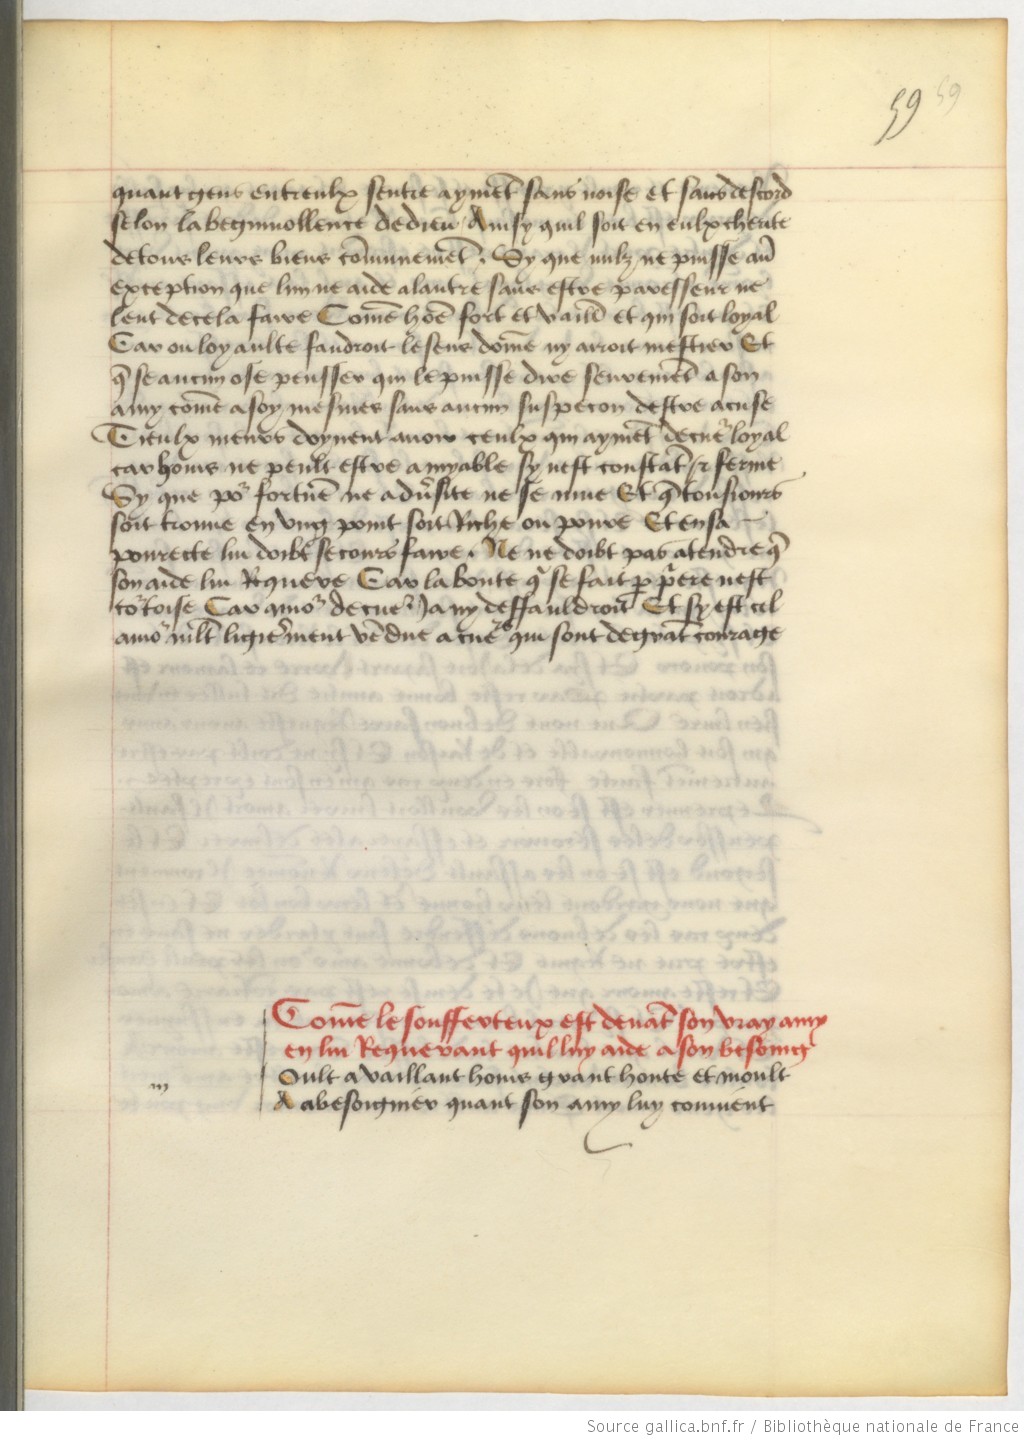 59 59
quant gens entreulx sentre aymẽt sans noise et sans descord
selon la begnivollence de dieu Ainsy quil soit en eulx cherite
de tous leurs biens cõmunemẽt. Sy que nulz ne puisse aũ
exception que lun ne aide a lautre sans estre paresseux ne
lent de cela faire Cõme hõe fort et vaillãt et qui soit loyal
Car ou loyaulte faudroit le sens dõme ny aroit mestier Et
q̃ se aucun ose pensser qui le puisse dire seuremẽt a son
amy cõme a soy mesmes sans aucun suspecon destre acuse
Tieulx meurs doyvent avoir ceulx qui aymẽt de cuer loyal
car homs ne peult estre amyable sy nest constãt & ferme
Sy que por fortũe ne adṽsite ne se mue Et q̃ tousiours
soit trouve en ung point soit Riche ou povre Et en sa
povrecte lui doibt secours faire. Ne ne doibt pas atendre q̃
son aide lui Requere Car la bonte q̃ se fait p pere nest
cortoise Car amor de cuer Ja ny deffauldroit Et sy est cel
amor mlt ligierment vẽdue a cuers qui sont de grãt courage
Cõme le souffreteux est devãt son vray amy
en lui Requerant quil luy aide a son besoing
m
Oult a vaillant homs grant honte et moult
A a besoignier quant son amy luy convient
Source gallica.bnf.fr / Bibliothèque nationale de France